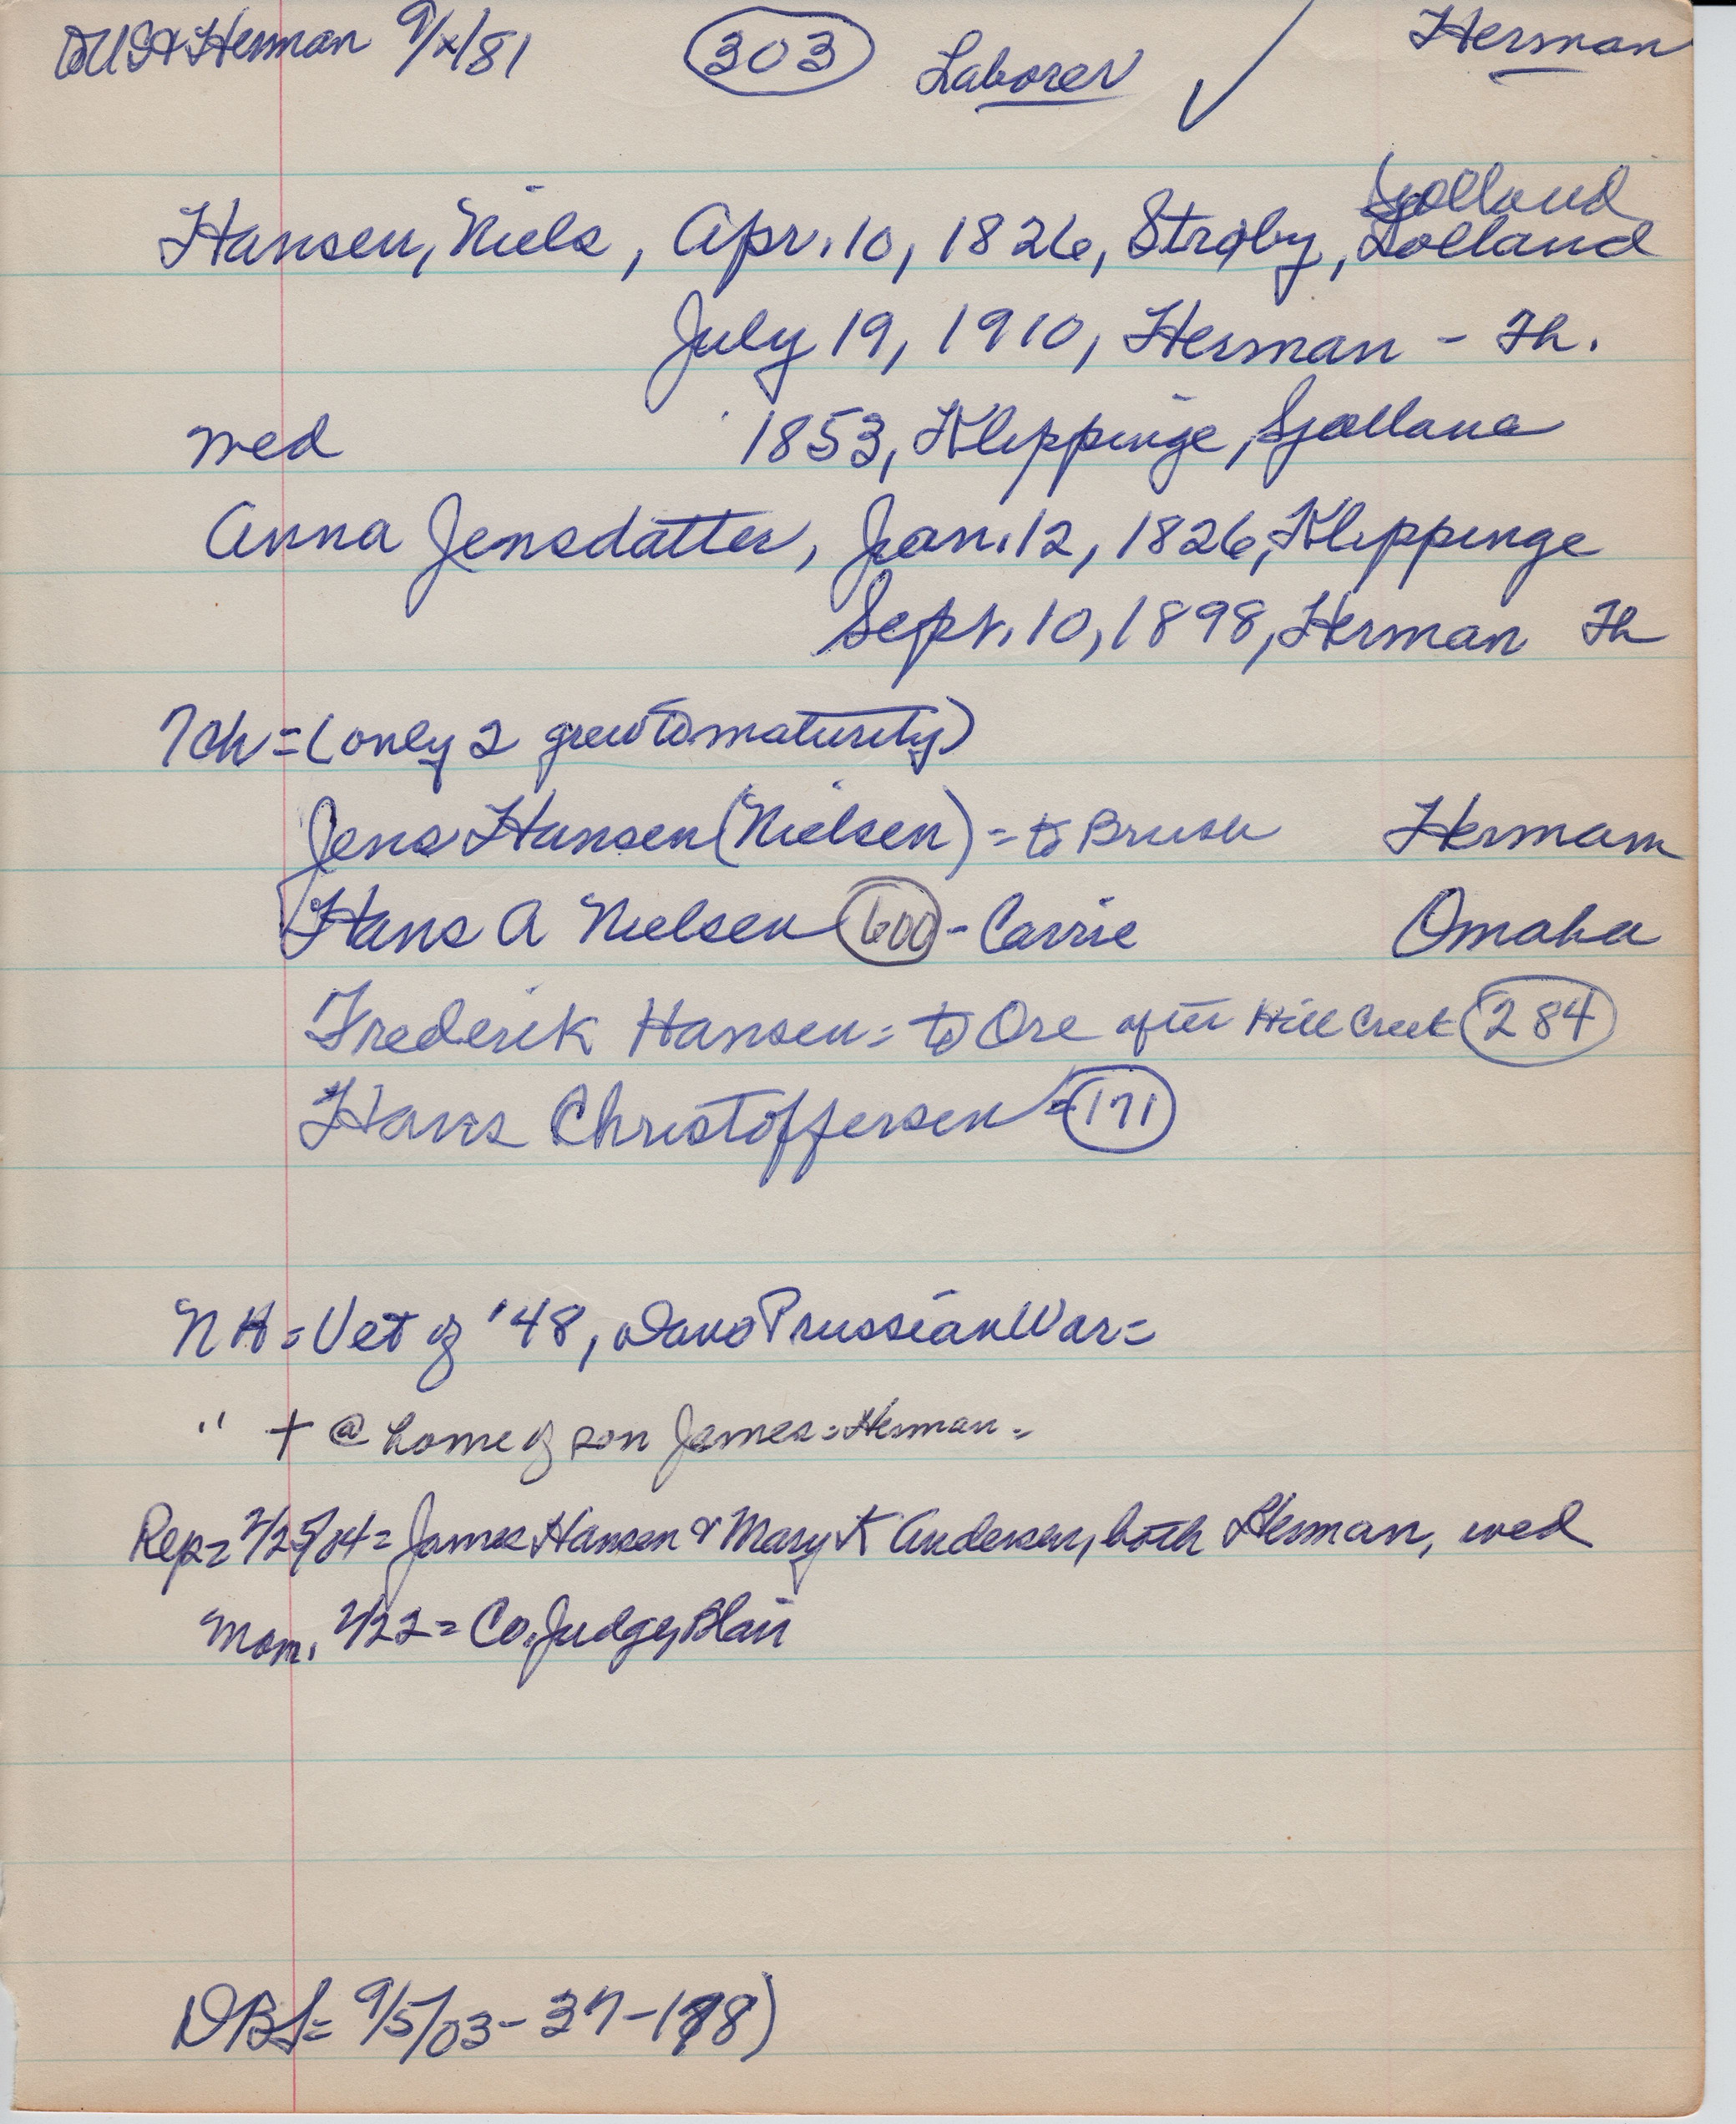 to USA & Herman 9/x/81 303 Laborer ✓ Herman
Sjolland
Hansen, Niels, Apr. 10, 1826, Strøby, Lolland
July 19, 1910, Herman - Th.
wed 1853, Klippinge, Sjolland
Anna Jensdatter, Jan. 12, 1826, Klippinge
Sept. 10, 1898, Herman Th
7 ch = (only 2 grew to maturity)
Jens Hansen (Nielsen) = to Brush Herman
Hans A Nielsen 600 - Carrie Omaha
Frederik Hansen = to Ore after Hill Creek 284
Hans Christoffersen = 171
NH = Vet of '48, Dano Prussian War =
" + @ home of son James = Herman =
Rep = 2/25/04 = James Hansen & Mary K Andersen, both Herman, wed
Mon. 2/22 = Co. Judge, Blair
DBS = 9/5/03 - 37 - 178)